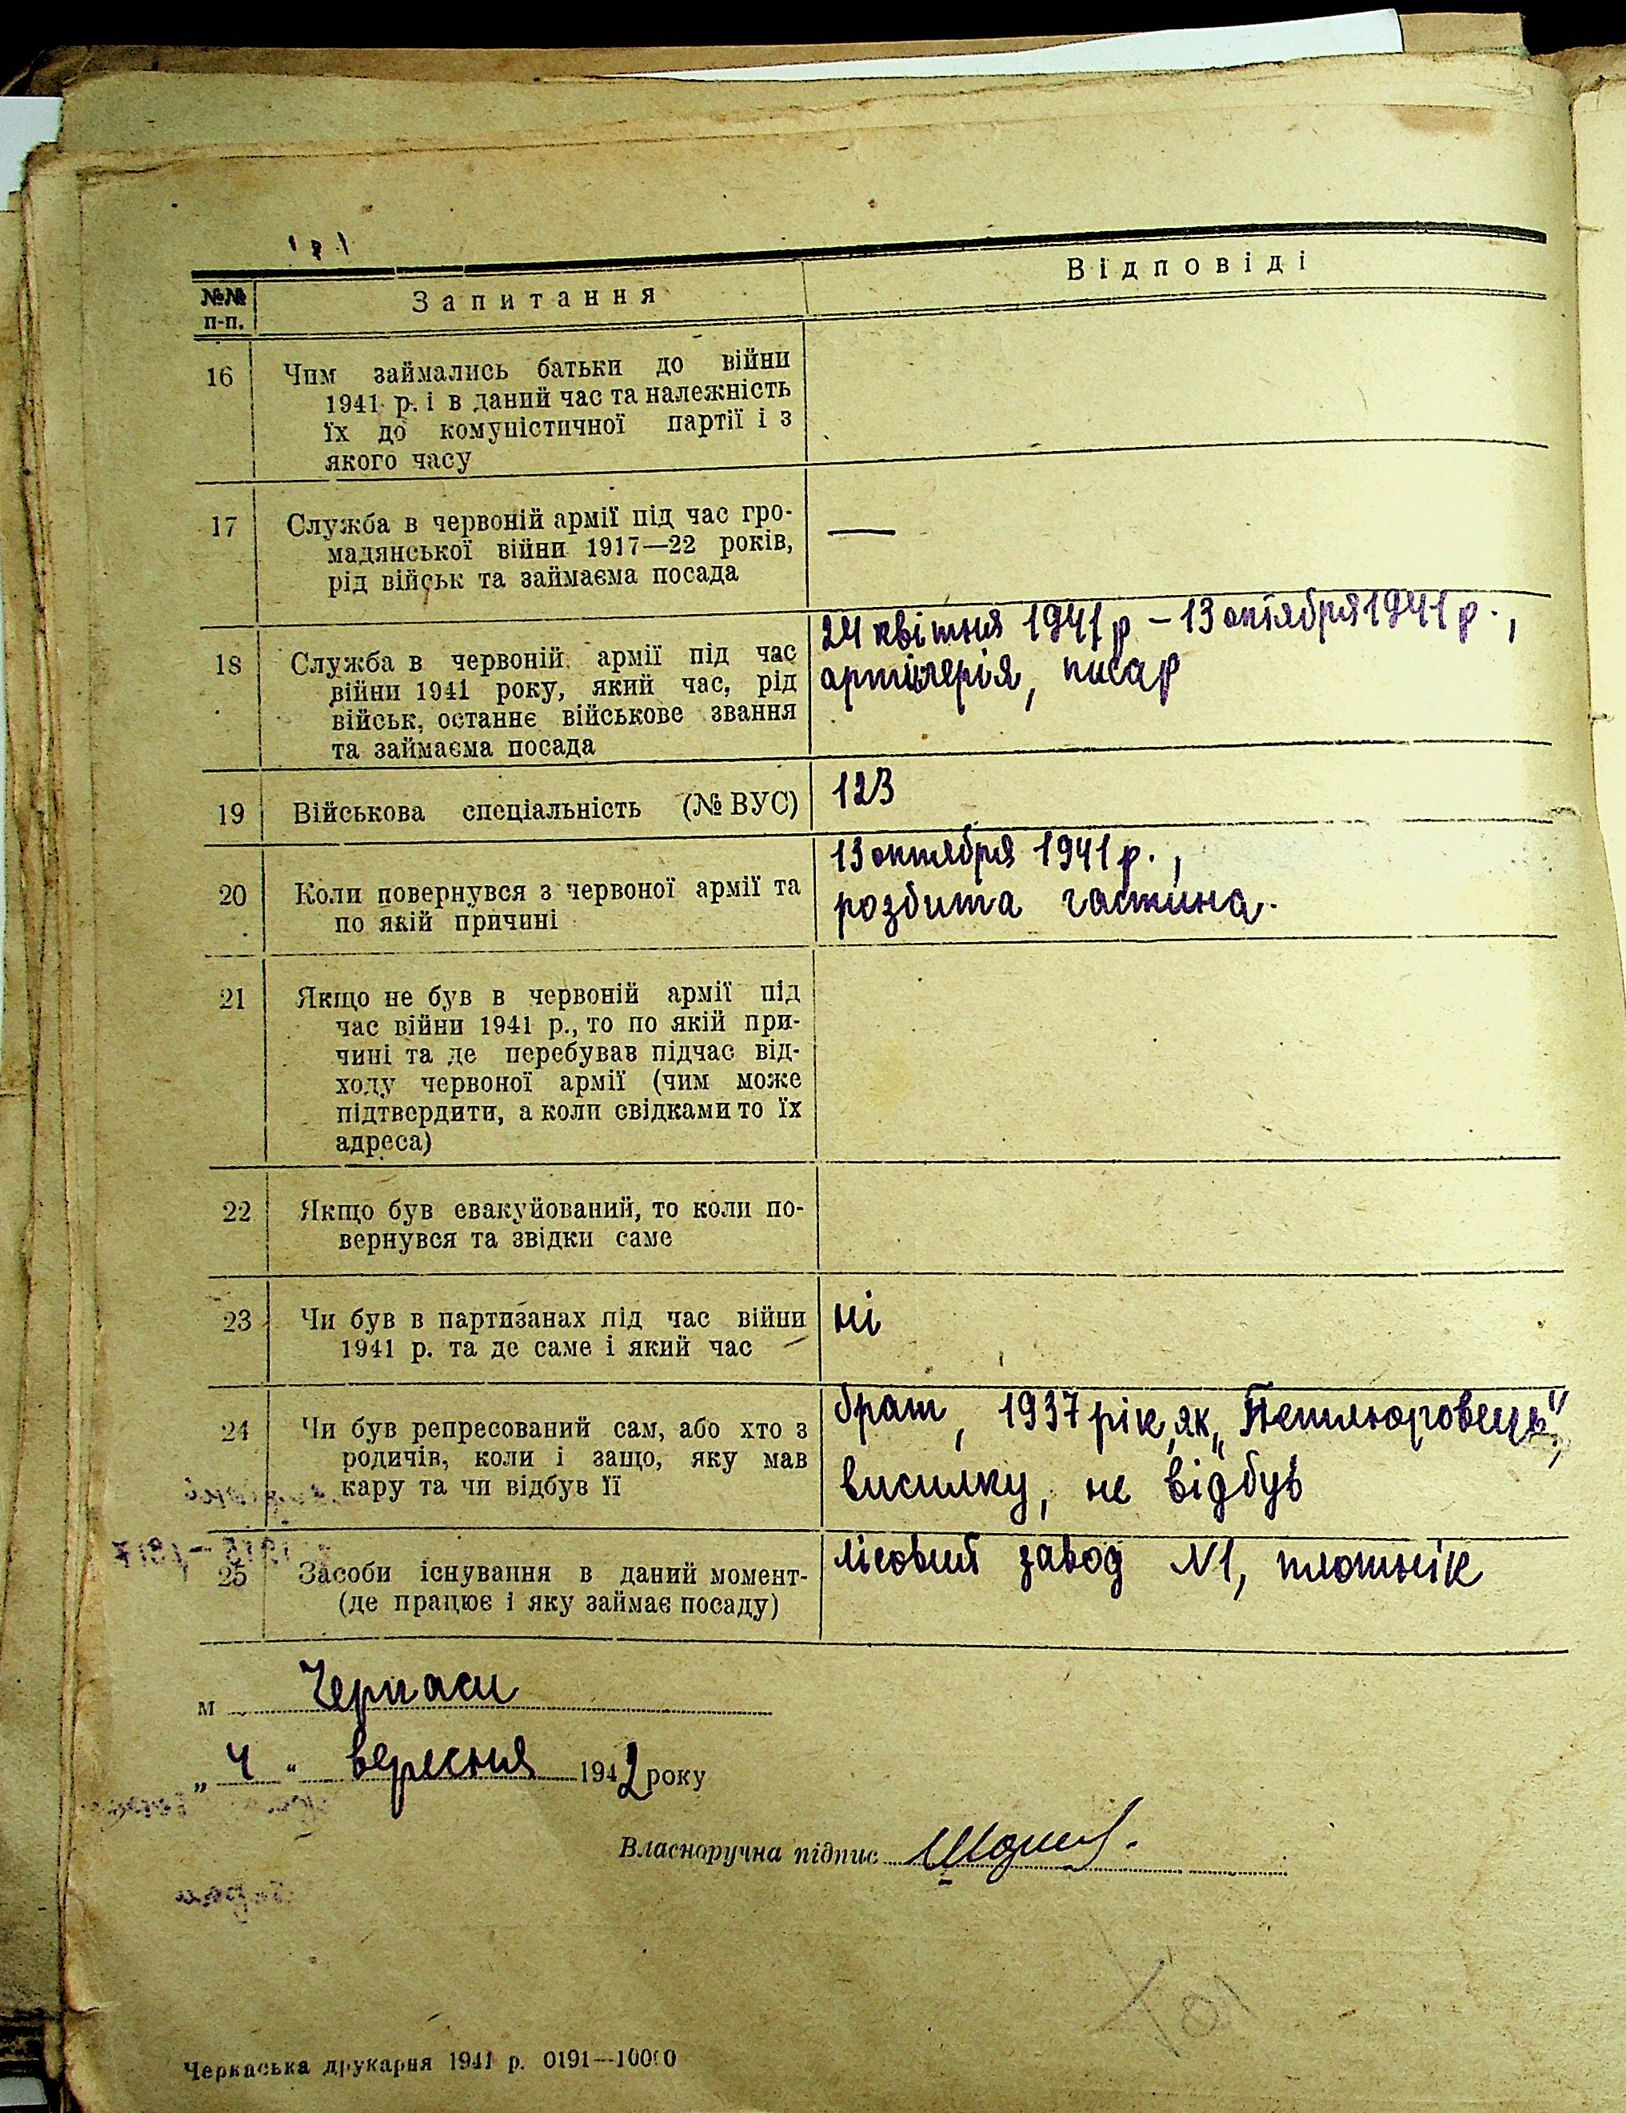 №№ п-п.
Запитання
Відповіді
16
Чим займались батьки до війни
1941 р. і в даний час та належність
їх до комуністичної партії і з
якого часу
17
Служба в червоній армії під час гро-
мадянської війни 1917—22 років,
рід військ та займаєма посада
—
18
Служба в червоній армії під час
війни 1941 року, який час, рід
військ, останнє військове звання
та займаєма посада
24 квітня 1941 р – 13 октября 1941 р.,
артілерія, писар
19
Військова спеціальність (№ ВУС)
123
20
Коли повернувся з червоної армії та
по якій причині
13 октября 1941 р.,
розбита частина.
21
Якщо не був в червоній армії під
час війни 1941 р., то по якій при-
чині та де перебував підчас від-
ходу червоної армії (чим може
підтвердити, а коли свідками то їх
адреса)
22
Якщо був евакуйований, то коли по-
вернувся та звідки саме
23
Чи був в партизанах під час війни
1941 р. та де саме і який час
ні
24
Чи був репресований сам, або хто з
родичів, коли і защо, яку мав
кару та чи відбув її
брат, 1937 рік, як „Петлюровець",
висилку, не відбув
25
Засоби існування в даний момент-
(де працює і яку займає посаду)
лісовий завод №1, плотнік
м Черкаси
„ 4 " вересня 1942 року
Власноручна підпис
Черкаська друкарня 1941 р. 0191—10000